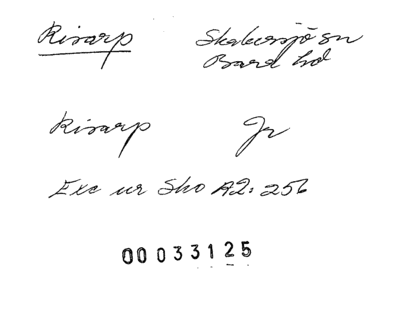 Risarp Skatersjö sn
Bara hd
Risarp Jr
Exc ur Sho A2: 256
00033125